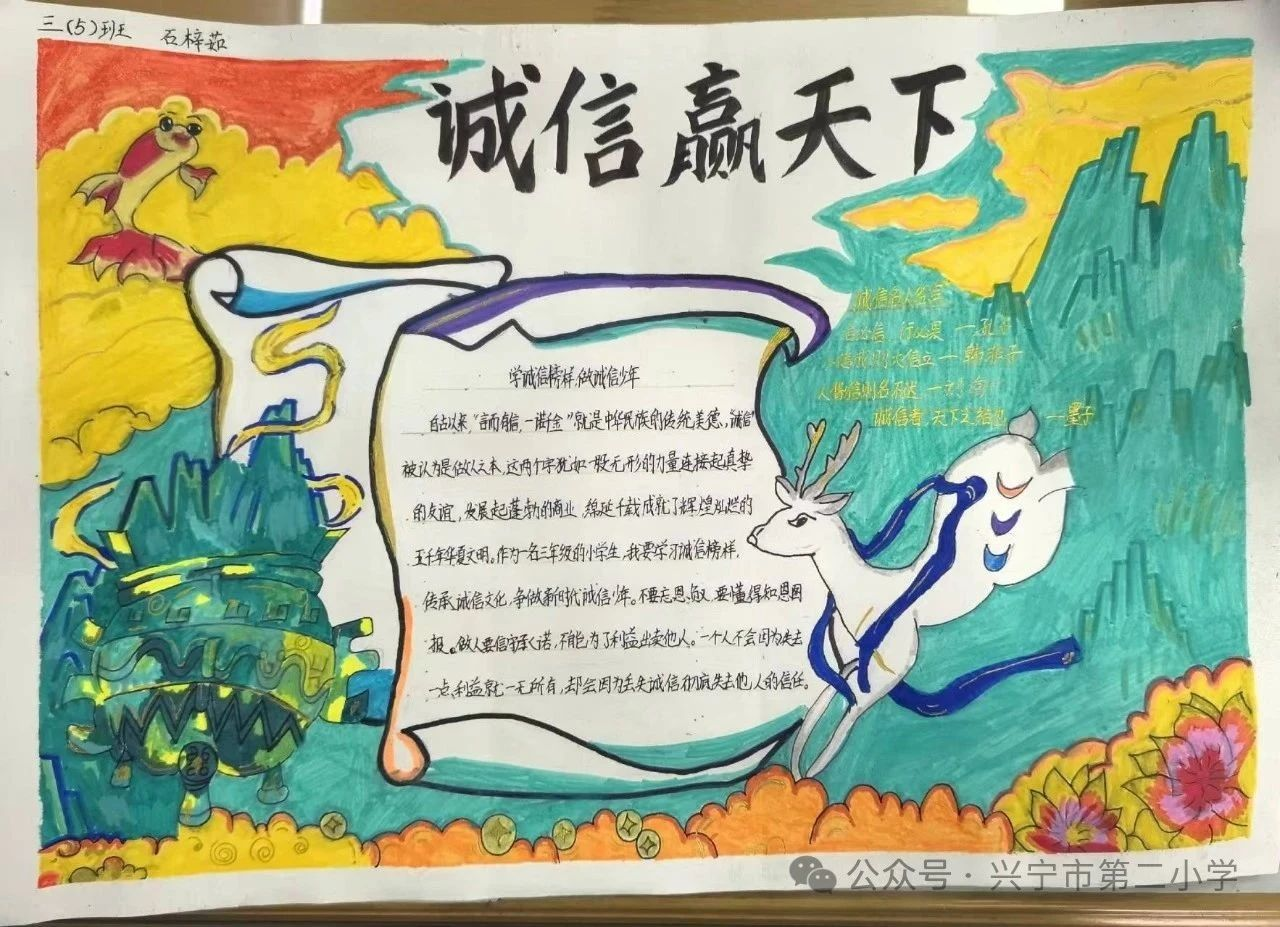 三(5)班 石梓茹
诚信赢天下
学诚信榜样,做诚信少年
自古以来,“言而有信,一诺千金”就是中华民族的传统美德,“诚信”
被认为是做人之本,这两个字犹如一股无形的力量连接起真挚
的友谊,发展起蓬勃的商业,绵延千载成就了辉煌灿烂的
五千年华夏文明。作为一名三年级的小学生,我要学习诚信榜样,
传承诚信文化,争做新时代诚信少年。不要忘恩负义,要懂得知恩图
报。做人要信守承诺,不能为了利益出卖他人。一个人不会因为失去
一点利益就一无所有,却会因为丢失诚信彻底失去他人的信任。
诚信名人名言
言必信 行必果 —孔子
小信成则大信立 —韩非子
人
诚信者,天下之结也 —墨子
公众号·兴宁市第二小学